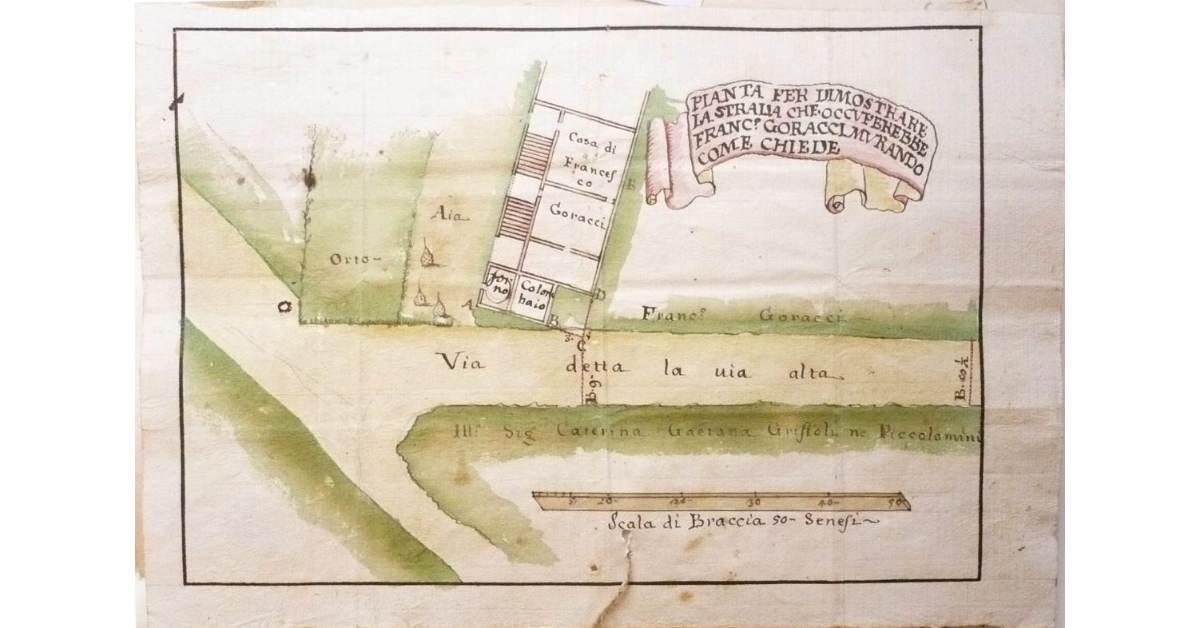 PIANTA PER DIMOSTRARE
LA STRADA CHE OCCUPEREBBE
FRANC.º GORACCI MURANDO
COME CHIEDE
Casa di
Frances
co
Goracci
Aia
Orto
for
no
Colom
baio
A
B
B
C
D
Franc.º Goracci
Via detta la uia alta
B. 9
B. 8½
Ill.ª Sig.ª Caterina Gaetana Griffoli ne Piccolomini
10 20 30 40 50
Scala di Braccia 50 Senesi